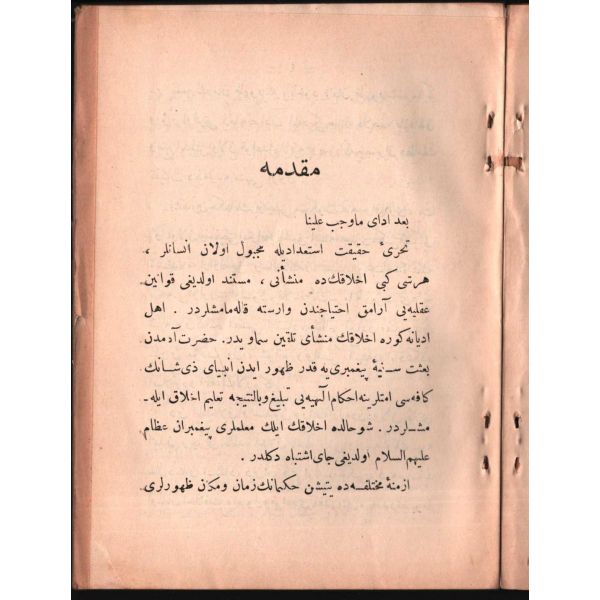 مقدمه
بعد ادای ماوجب علینا
تحریٔ حقیقت استعدادیله مجبول اولان انسانلر ،
هرشی كبی اخلاقك ده منشأنی ، مستند اولدیغی قوانین
عقلیه یی آرامق احتیاجندن وارسته قاله مامشلردر . اهل
ادیانه كوره اخلاقك منشأی تلقین سماویدر. حضرت آدمدن
بعثت سنیهٔ پیغمبری یه قدر ظهور ایدن انبیای ذی شانك
كافه سی امتلرینه احكام الهیه یی تبلیغ وبالنتیجه تعلیم اخلاق ایله‌ـ
مشلردر . شوحالده اخلاقك ایلك معلملری پیغمبران عظام
علیهم السلام اولدیغی جای اشتباه دكلدر .
ازمنهٔ مختلفه ده یتیشن حكمانك زمان ومكان ظهورلری